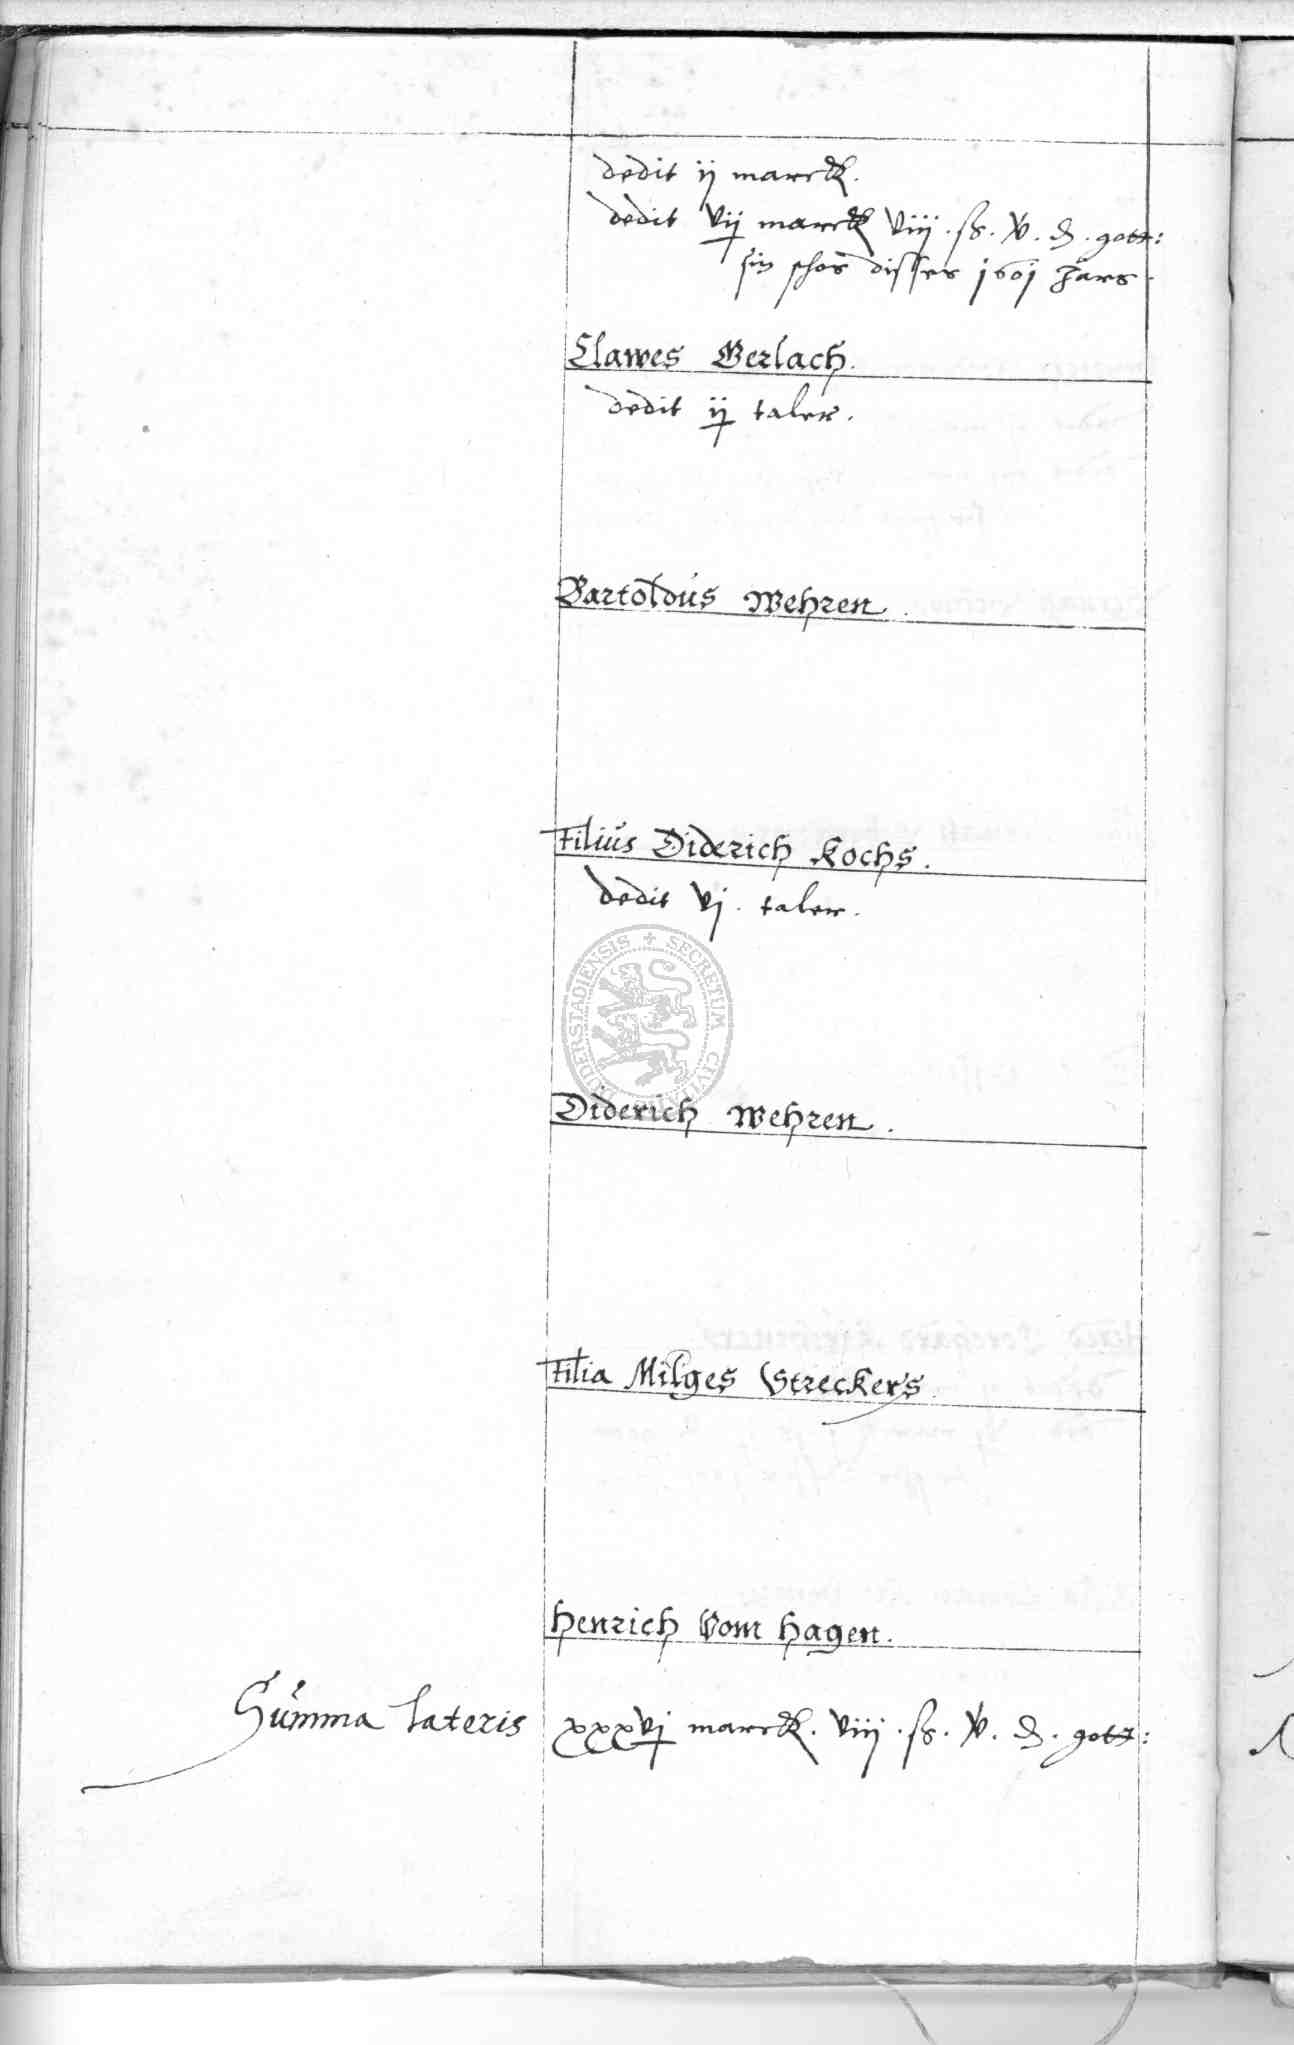 dedit ij marck.
dedit vij marck viij . ß . v . d . gott:
sin schos disses 1601 Jars.
Clawes Gerlach.
dedit ij taler.
Bartoldus Wehren.
Filius Diderich Kochs.
dedit vj . taler.
SECRETUM CIVITATIS DUDERSTADIENSIS
Diderich Wehren.
Filia Milges Streckers.
Henrich Vom Hagen.
Summa lateris xxxvj marck. viij . ß . v . d . gott: